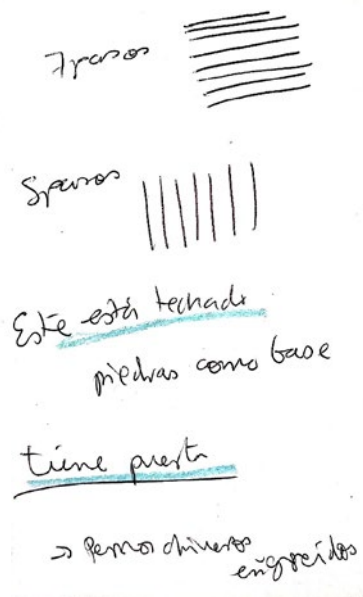 7 pasos
5 pasos
Este está techado
piedras como base
tiene puerta
→ Perros chineros
engreídos